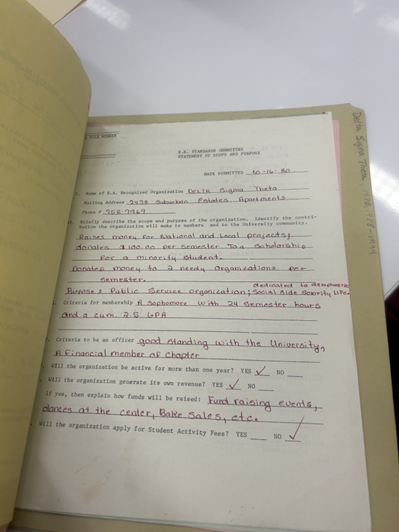 S.A. STANDARDS COMMITTEE
STATEMENT OF SCOPE AND PURPOSE
DATE SUBMITTED 10-16-80
Name of S.A. Recognized Organization Delta Sigma Theta
Mailing Address 2438 Suburban Estates Apartments
Phone # 758-7967
Briefly describe the scope and purpose of the organization. Identify the contri-
bution the organization will make to members and to the University community.
Raises money for National and local projects,
donates $100.00 per semester to a scholarship
for a minority student.
Donates money to 2 needy organizations per
semester.
dedicated to
Purpose: Public Service organization; Social Side Sorority life.
Criteria for membership A Sophomore with 24 Semester hours
and a cum. 2.5 GPA
Criteria to be an officer good standing with the University,
A financial member of chapter
Will the organization be active for more than one year? YES ✓ NO
Will the organization generate its own revenue? YES ✓ NO
If yes, then explain how funds will be raised: Fund raising events,
dances at the center, Bake Sales, etc.
Will the organization apply for Student Activity Fees? YES NO ✓
Delta Sigma Theta